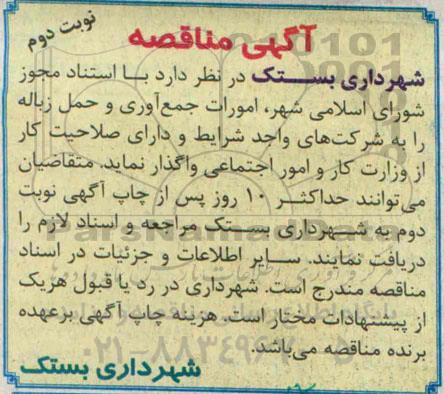 نوبت دوم
آگهی مناقصه
شهرداری بستک در نظر دارد با استناد مجوز
شورای اسلامی شهر، امورات جمع‌آوری و حمل زباله
را به شرکت‌های واجد شرایط و دارای صلاحیت کار
از وزارت کار و امور اجتماعی واگذار نماید. متقاضیان
می‌توانند حداکثر ۱۰ روز پس از چاپ آگهی نوبت
دوم به شهرداری بستک مراجعه و اسناد لازم را
دریافت نمایند. سایر اطلاعات و جزئیات در اسناد
مناقصه مندرج است. شهرداری در رد یا قبول هریک
از پیشنهادات مختار است. هزینه چاپ آگهی برعهده
برنده مناقصه می‌باشد.
شهرداری بستک
ParsNamadData